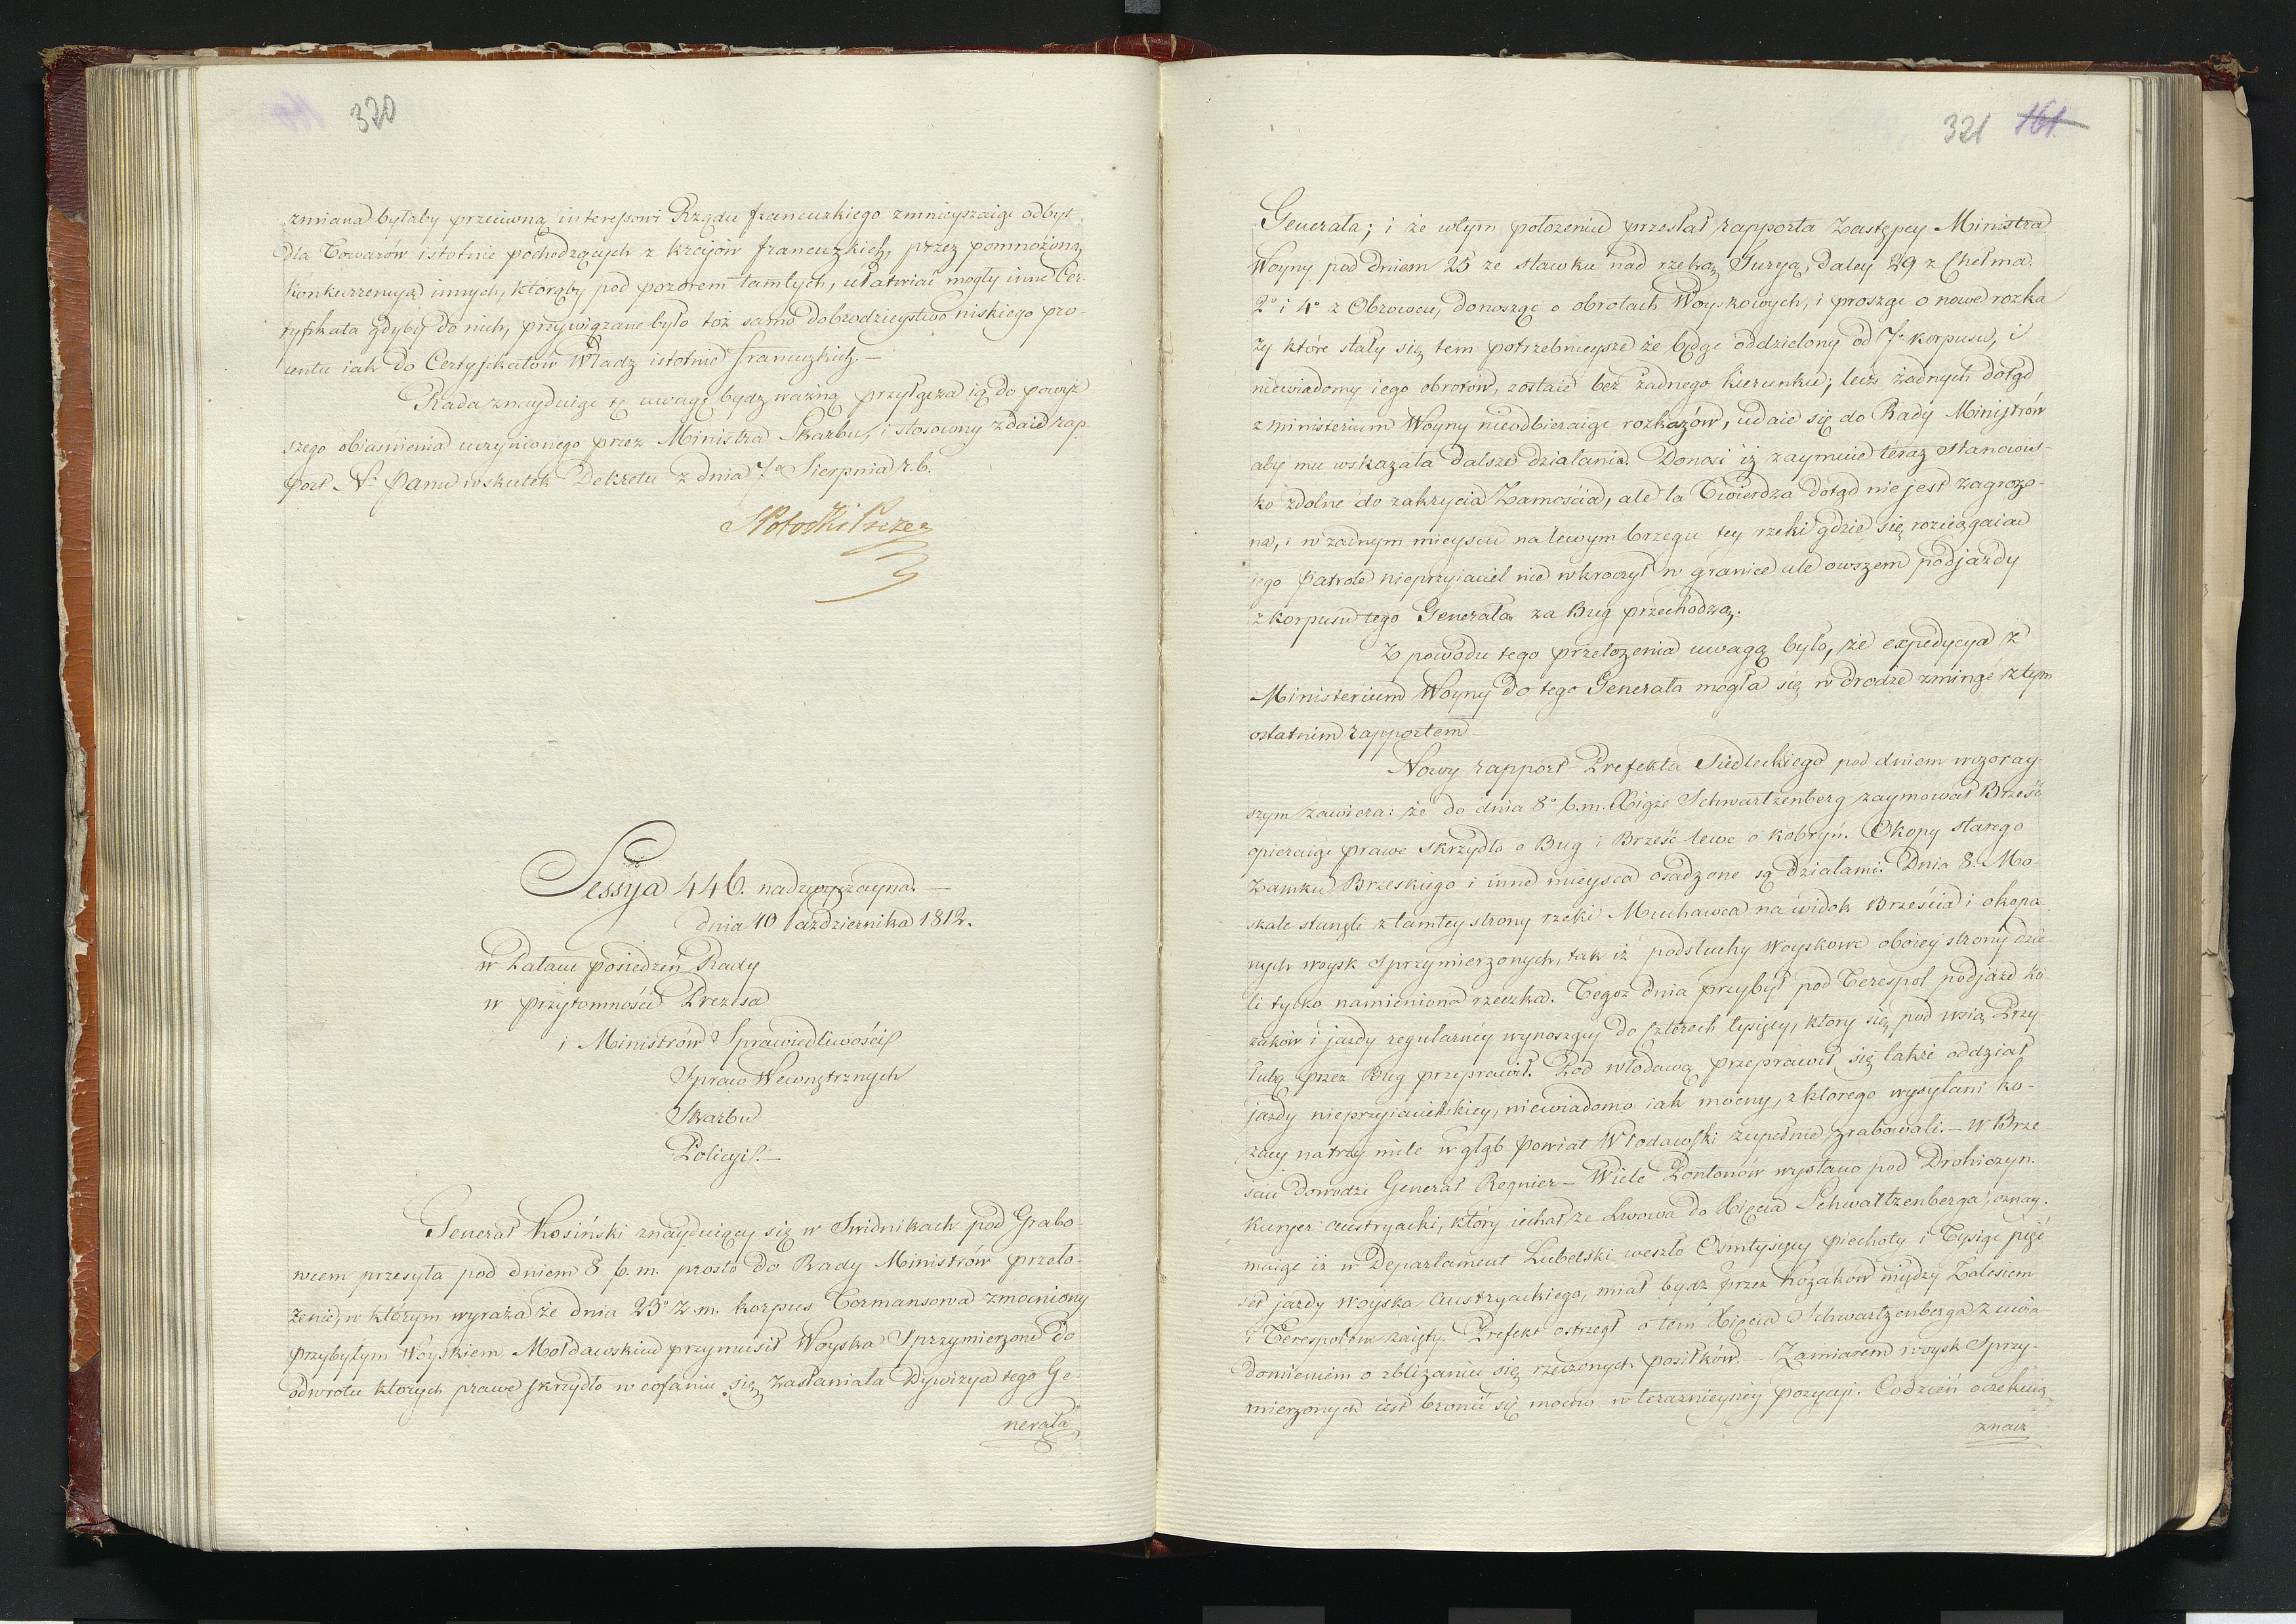 320
zmiana byłaby przeciwną interessowi Rządu francuzkiego zmnieyszaiąc odbyt
dla Towarów istotnie pochodzących z kraiów francuzkich, przez pomnożoną
konkurrencyą innych, którąby pod pozorem tamtych, ułatwiać mogły inne Cer-
tyfikata gdyby do nich, przywiązane było toż samo dobrodzieystwo niskiego pro-
centu iak do Certyfikatów Władz istotnie francuzkich.—
Rada znayduiąc tę uwagę bydź ważną przyłącza ią do powyż-
szego obiasnienia uczynionego przez Ministra Skarbu, i stosowny zdaie rap-
port N. Panu w skutek Dekretu z dnia 7o Sierpnia r.b.
SPotocki Prezes
Sessya 446. nadzwyczayna.—
dnia 10 Października 1812.
w Pałacu posiedzeń Rady
w przytomności Prezesa
i Ministrów Sprawiedliwości
Spraw Wewnętrznych
Skarbu
Policyi.—
Generał Kosiński znayduiący się w Swidnikach pod Grabo-
wcem przesyła pod dniem 8 b.m. prosto do Rady Ministrów przeło-
żenie, w którym wyraża że dnia 23o z.m. korpus Tormansowa zmocniony
przybyłym Woyskiem Mołdawskim przymusił Woyska Sprzymierzone do
odwrotu których prawe skrzydło w cofaniu się zasłaniała Dywizya tego Ge-
nerała
321 161
Generała; i że w tym położeniu przesłał rapporta Zastępcy Ministra
Woyny pod dniem 25 ze stawku nad rzeką Turyą, daley 29 z Chełma.
2o i 4o z Obrowca, donosząc o obrotach Woyskowych, i prosząc o nowe rozka
zy które stały się tem potrzebnieysze że będąc oddzielony od 7o korpusu, i
niewiadomy iego obrotów, zostaie bez żadnego kierunku; lecz żadnych dotąd
z ministerium Woyny nieodbieraiąc rozkazów, udaie się do Rady Ministrów
aby mu wskazała dalsze działania. Donosi iż zaymuie teraz stanowis-
ko zdolne do zakrycia Zamościa, ale ta Twierdza dotąd nie jest zagrożo-
na, i w żadnym mieyscu na lewym brzegu tey rzeki gdzie się rozciągaią
iego patrole nieprzyiaciel nie wkroczył w granice ale owszem podjazdy
z korpusu tego Generała za Bug przechodzą.
Z powodu tego przełożenia uwagą było, że expedycya z
Ministerium Woyny do tego Generała mogła się w drodze zminąć z tym
ostatnim rapportem—
Nowy rapport Prefekta Siedleckiego pod dniem wczoray-
szym zawiera: że do dnia 8o b.m. Xiąże Schwartzenberg zaymował Brześć
opieraiąc prawe skrzydło o Bug i Brześć lewe o Kobryń. Okopy starego
Zamku Brzeskiego i inne mieysca osadzone są działami. Dnia 8. Mo-
skale stanęli z tamtey strony rzeki Muchawca na widok Brześcia i okopa-
nych woysk Sprzymierzonych, tak iż podsłuchy Woyskowe obóiey strony dzie-
li tylko namieniona rzeczka. Tegoż dnia przybył pod Terespol podjazd ko-
zaków i jazdy regularnéy wynoszący do czterech tysięcy, który się pod wsią Przy-
łuką przez Bug przeprawił. Pod Włodawą przeprawił się także oddział
jazdy nieprzyiacielskiey, niewiadomo iak mocny, z którego wysyłani ko-
zacy na trzy mile w głąb powiat Włodawski zupełnie zrabowali.— W Brze
sciu dowodzi Generał Regnier— Wiele Pontonów wysłano pod Drohiczyn.
Kuryer austryacki, który iechał ze Lwowa do Xięcia Schwartzenberga, oznay-
muiąc iż w Departament Lubelski weszło Ośmtysięcy piechoty i Tysiąc pięć
set jazdy Woyska Austryackiego, miał bydz przez Kozaków między Zalesiem
i Terespolem zaięty. Prefekt ostrzegł o tem Xięcia Schwartzenberga z uwia-
domieniem o zbliżaniu się rzeczonych posiłków.— Zamiarem woysk Sprzy-
mierzonych iest bronić się mocno w teraznieyszéy pozycyi. Codzień oczekują
znacz